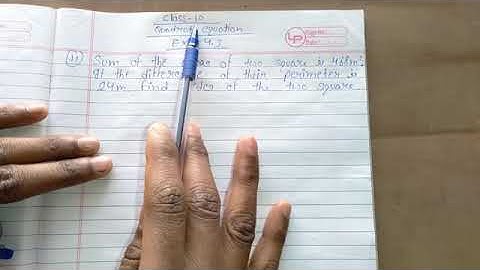 Class-10
Quadratic equation
Ex 4.3
11) Sum of the of two square is 468m²
If the difference of their perimeter is
24m find sides of the two square
LP